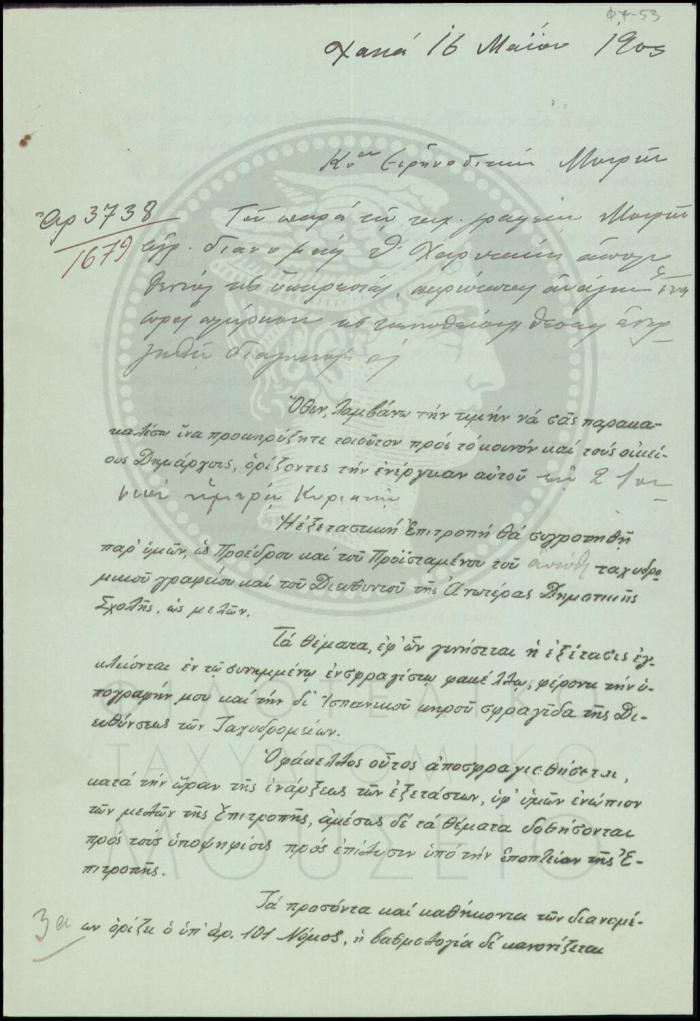 Φ7-53
Χανιά 16 Μαΐου 1905
Κον Ειρηνοδίκην Μοιρών
Αρ 3738
1679
Του παρά τω ταχ. γραφείω Μοιρών
αγρ. διανομέως Θ. Χαριτάκη απολυ
θέντος της υπηρεσίας,
προς πλήρωσιν της κενωθείσης θέσεως ενερ
γηθή διαγωνισμός
Ὅθεν, λαμβάνω τὴν τιμὴν νὰ σᾶς παρακα-
λέσω ἵνα προκηρύξητε τοιοῦτον πρὸς τὸ κοινόν καὶ τοὺς οἰκεί-
ους Δημάρχους, ὁρίζοντες τὴν ἐνέργειαν αὐτοῦ τη 2 Ιου-
νίου ημέραν Κυριακήν
Ἡ ἐξεταστικὴ Ἐπιτροπὴ θὰ συγκροτηθῇ
παρ' ὑμῶν, ὡς Προέδρου καὶ τοῦ Προϊσταμένου τοῦ αυτόθι ταχυδρο-
μικοῦ γραφείου καὶ τοῦ Διευθυντοῦ τῆς Ἀνωτέρας Δημοτικῆς
Σχολῆς, ὡς μελῶν.
Τὰ θέματα, ἐφ' ὧν γενήσεται ἡ ἐξέτασις ἐγ-
κλείονται ἐν τῷ συνημμένῳ ἐνσφραγίστῳ φακέλλῳ, φέροντι τὴν ὑ-
πογραφήν μου καὶ τὴν δι' Ἱσπανικοῦ κηροῦ σφραγῖδα τῆς Δι-
ευθύνσεως τῶν Ταχυδρομείων.
Ὁ φάκελλος οὗτος ἀποσφραγισθήσεται,
κατὰ τὴν ὥραν τῆς ἐνάρξεως τῶν ἐξετάσεων, ὑφ' ὑμῶν ἐνώπιον
τῶν μελῶν τῆς Ἐπιτροπῆς, ἀμέσως δέ τὰ θέματα δοθήσονται
πρὸς τοὺς ὑποψηφίους πρὸς ἐπίλυσιν ὑπὸ τὴν ἐποπτείαν τῆς Ἐ-
πιτροπῆς.
Τὰ προσόντα καὶ καθήκοντα τῶν διανομέ-
ων ὁρίζει ὁ ὑπ' ἀρ. 101 Νόμος, ἡ βαθμολογία δὲ κανονίζεται
ΦΙΛΟΤΕΛΙΚΟ
ΤΑΧΥΔΡΟΜΙΚΟ
ΜΟΥΣΕΙΟ